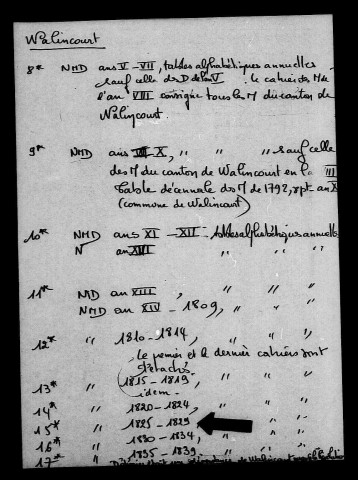 Walincourt
8* NMD ans V - VII, tables alphabétiques annuelles
sauf celle des D de l'an V. le cahier des M de
l'an VIII consigne tous les M du canton de
Walincourt.
9* NMD ans - X, " " " sauf celle
des M du canton de Walincourt en l'a VIII
table décennale des M de 1792, sept an X
(commune de Walincourt)
10* NMD ans XI - XII - tables alphabétiques annuelles
N an XVI " " "
11* MD an XIII, " " "
NMD an XIV - 1809, " " "
12* " 1810 - 1814, " " ",
le premier et le dernier cahiers sont
détachés
13* " (1815 - 1819, " " "
idem.
14* " 1820 - 1824, " " "
15* " 1825 - 1829
16* " 1830 - 1834, " " "
17* " 1835 - 1839, " " "